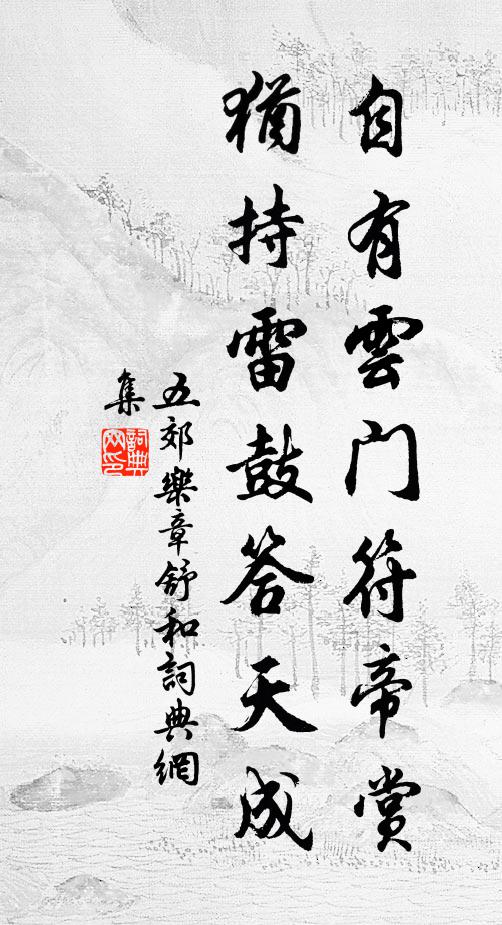 自有雲門符帝賞
猶持雷鼓答天成
五郊樂章舒和詞典網
集
詞典
网印